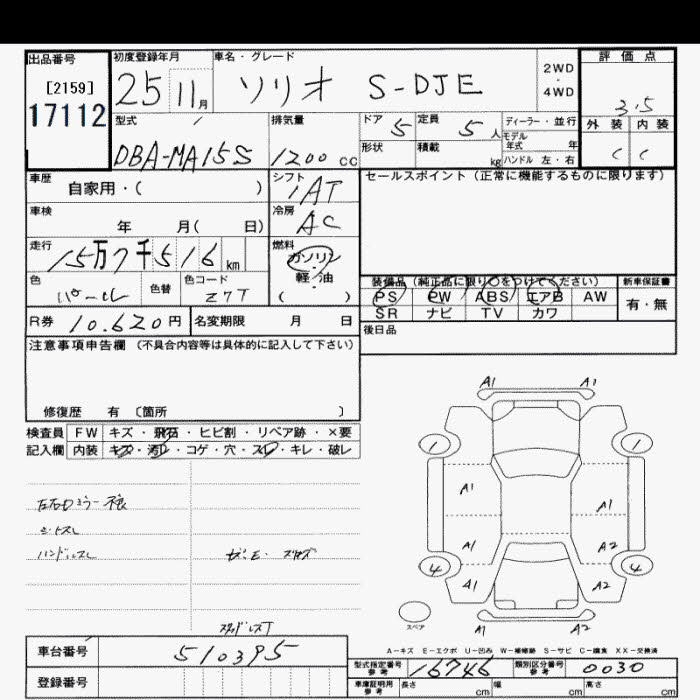 出品番号 [2159] 17112
初度登録年月 25 11月
車名・グレード ソリオ S-DJE
2WD・4WD
評価点 3.5
外装 C 内装 C
型式 DBA-MA15S
排気量 1200 cc
ドア 5 定員 5人
形状 積載 kg
ディーラー・並行
モデル年式 年
ハンドル 左・右
車歴 自家用・( )
シフト IAT
車検 年 月( 日)
冷房 AC
走行 15万7千516 km
燃料 ガソリン・軽油 ( )
色 パール 色替 色コード Z7T
R券 10.620円 名変期限 月 日
セールスポイント (正常に機能するものに限ります)
装備品 (純正品に限り〇をつけてください)
PS PW ABS エアB AW
SR ナビ TV カワ
新車保証書 有・無
後日品
注意事項申告欄 (不具合内容等は具体的に記入して下さい)
修復歴 有 〔箇所 〕
検査員記入欄
FW キズ・飛石・ヒビ割・リペア跡・×要
内装 キズ・汚レ・コゲ・穴・スレ・キレ・破レ
左右Dミラー不良
シートスレ
ハンドルスレ
スタッドレスT
A1 A1
1 1
A1 A1
A1 A2
4 4
A1 A2
スペア
A1 A2
A-キズ E-エクボ U-凹み W-補修跡 S-サビ C-腐食 XX-交換済
車台番号 510395
登録番号
型式指定番号 参考 16746 類別区分番号 参考 0030
車庫証明用 参考 長さ cm 幅 cm 高さ cm